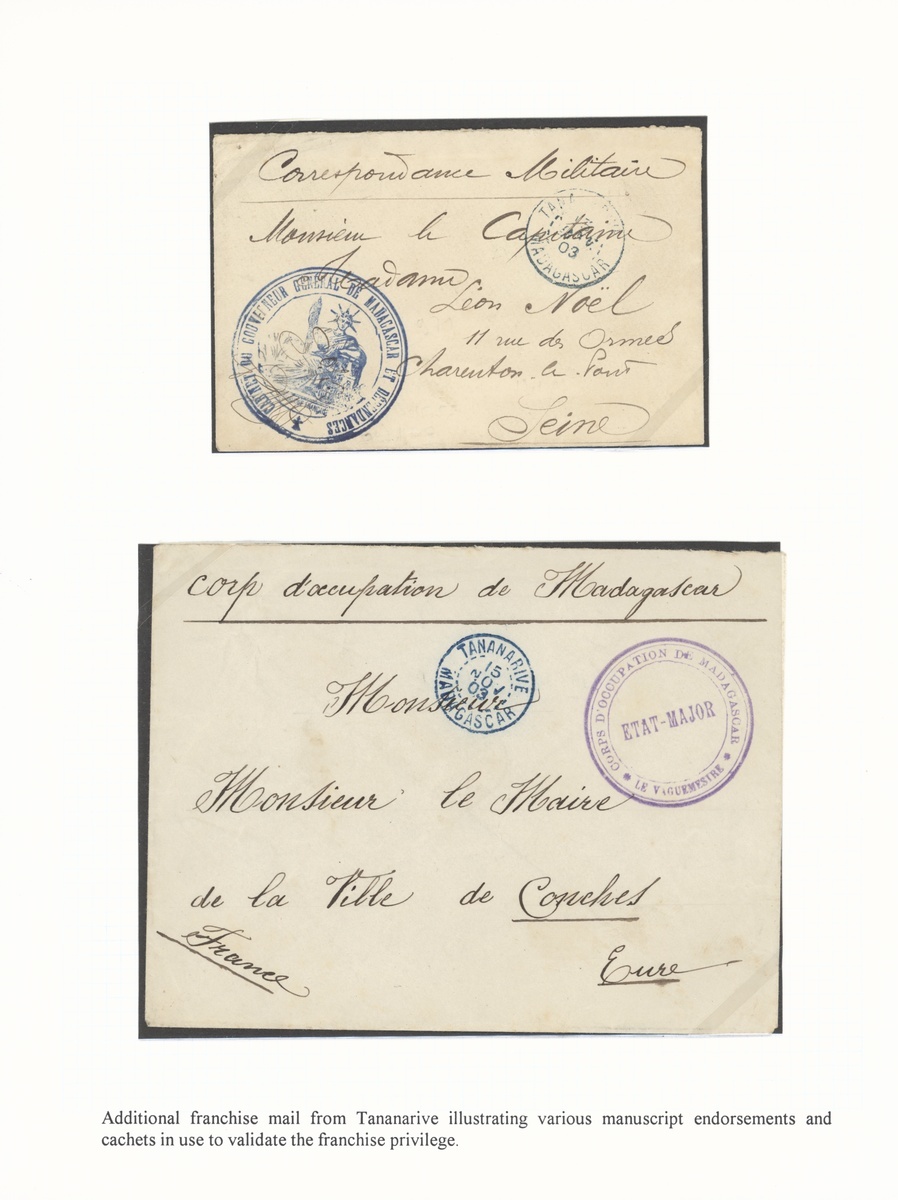 Correspondance Militaire
Monsieur le Capitaine
Madame
Léon Noël
11 rue des Ormes
Charenton-le-Pont
Seine
MADAGASCAR
03
CABINET DU GOUVERNEUR GENERAL DE MADAGASCAR ET DEPENDANCES
corp d'occupation de Madagascar
TANANARIVE
15
NOV
03
MADAGASCAR
CORPS D'OCCUPATION DE MADAGASCAR
ETAT-MAJOR
LE VAGUEMESTRE
Monsieur
Monsieur le Maire
de la Ville de Conches
France
Eure
Additional franchise mail from Tananarive illustrating various manuscript endorsements and
cachets in use to validate the franchise privilege.